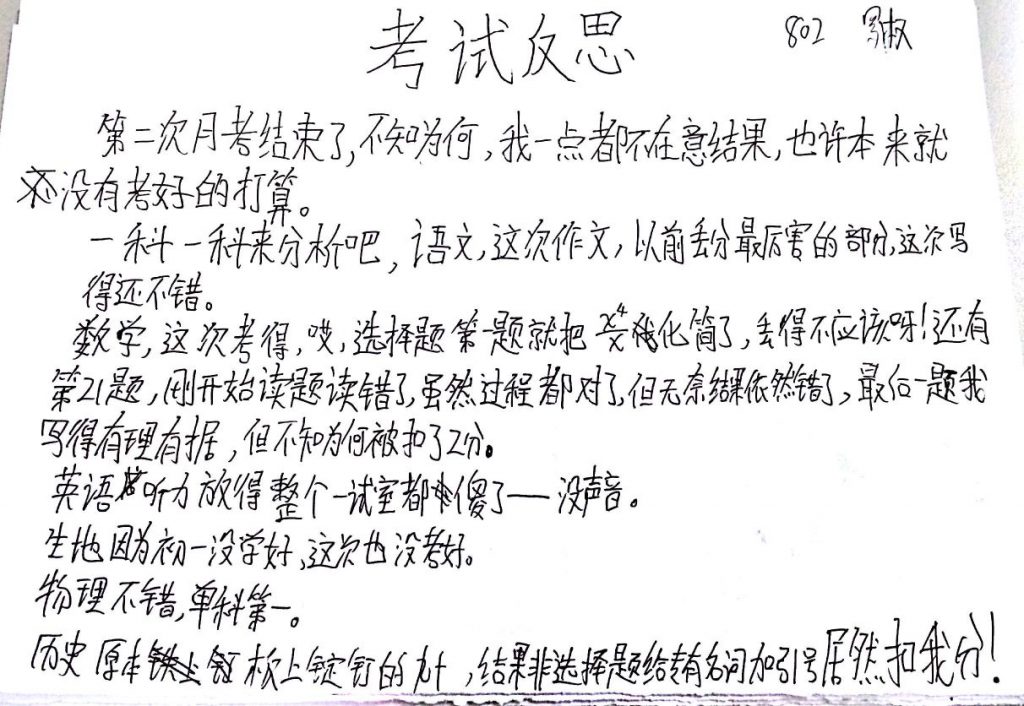 考试反思 802
第二次月考结束了,不知为何,我一点都不在意结果,也许本来就
没有考好的打算。
一科一科来分析吧,语文,这次作文,以前丢分最厉害的部分,这次写
得还不错。
数学,这次考得,哎,选择题第一题就把 化简了,丢得不应该呀!还有
第21题,刚开始读题读错了,虽然过程都对了,但无奈结果依然错了,最后一题我
写得有理有据,但不知为何被扣了2分。
英语听力放得整个一试室都傻了——没声音。
生地因为初一没学好,这次也没考好。
物理不错,单科第一。
历史原本板上锭钉的A+,结果非选择题给专有名词加引号居然扣我分!